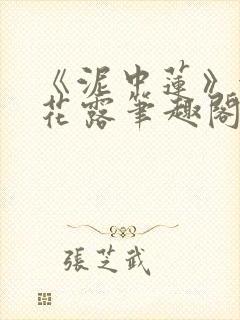 《泥中蓮》
花露筆趣閣
張芝武